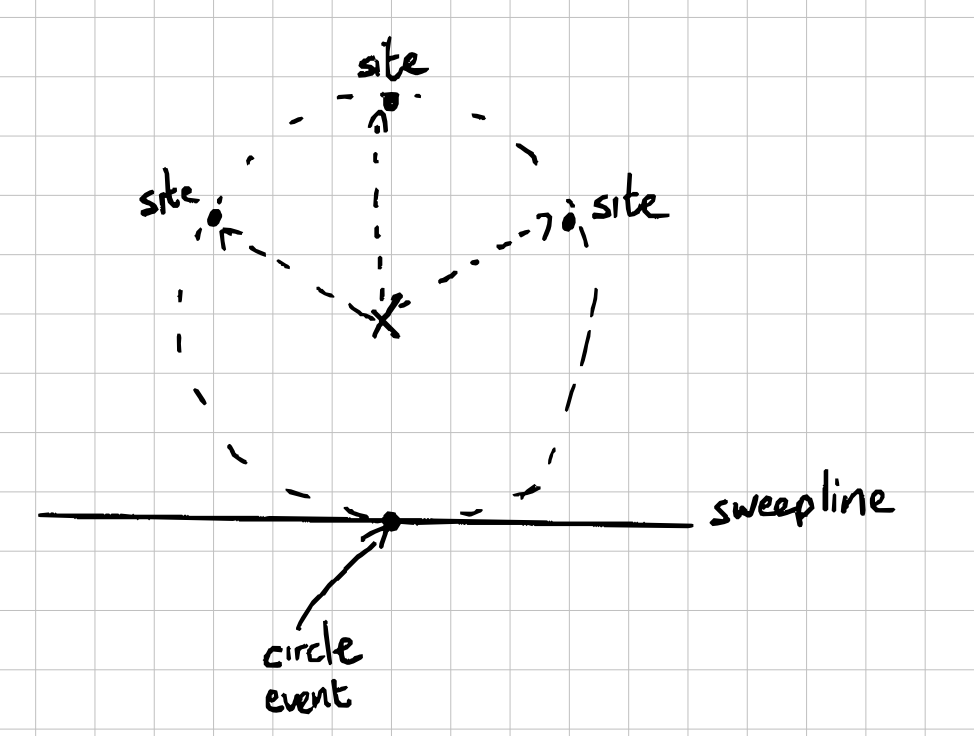 site
site
site
sweepline
circle
event